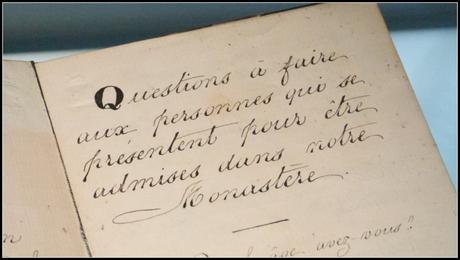 Questions à faire
aux personnes qui se
présentent pour être
admises dans notre
Monastère
âge avez-vous?